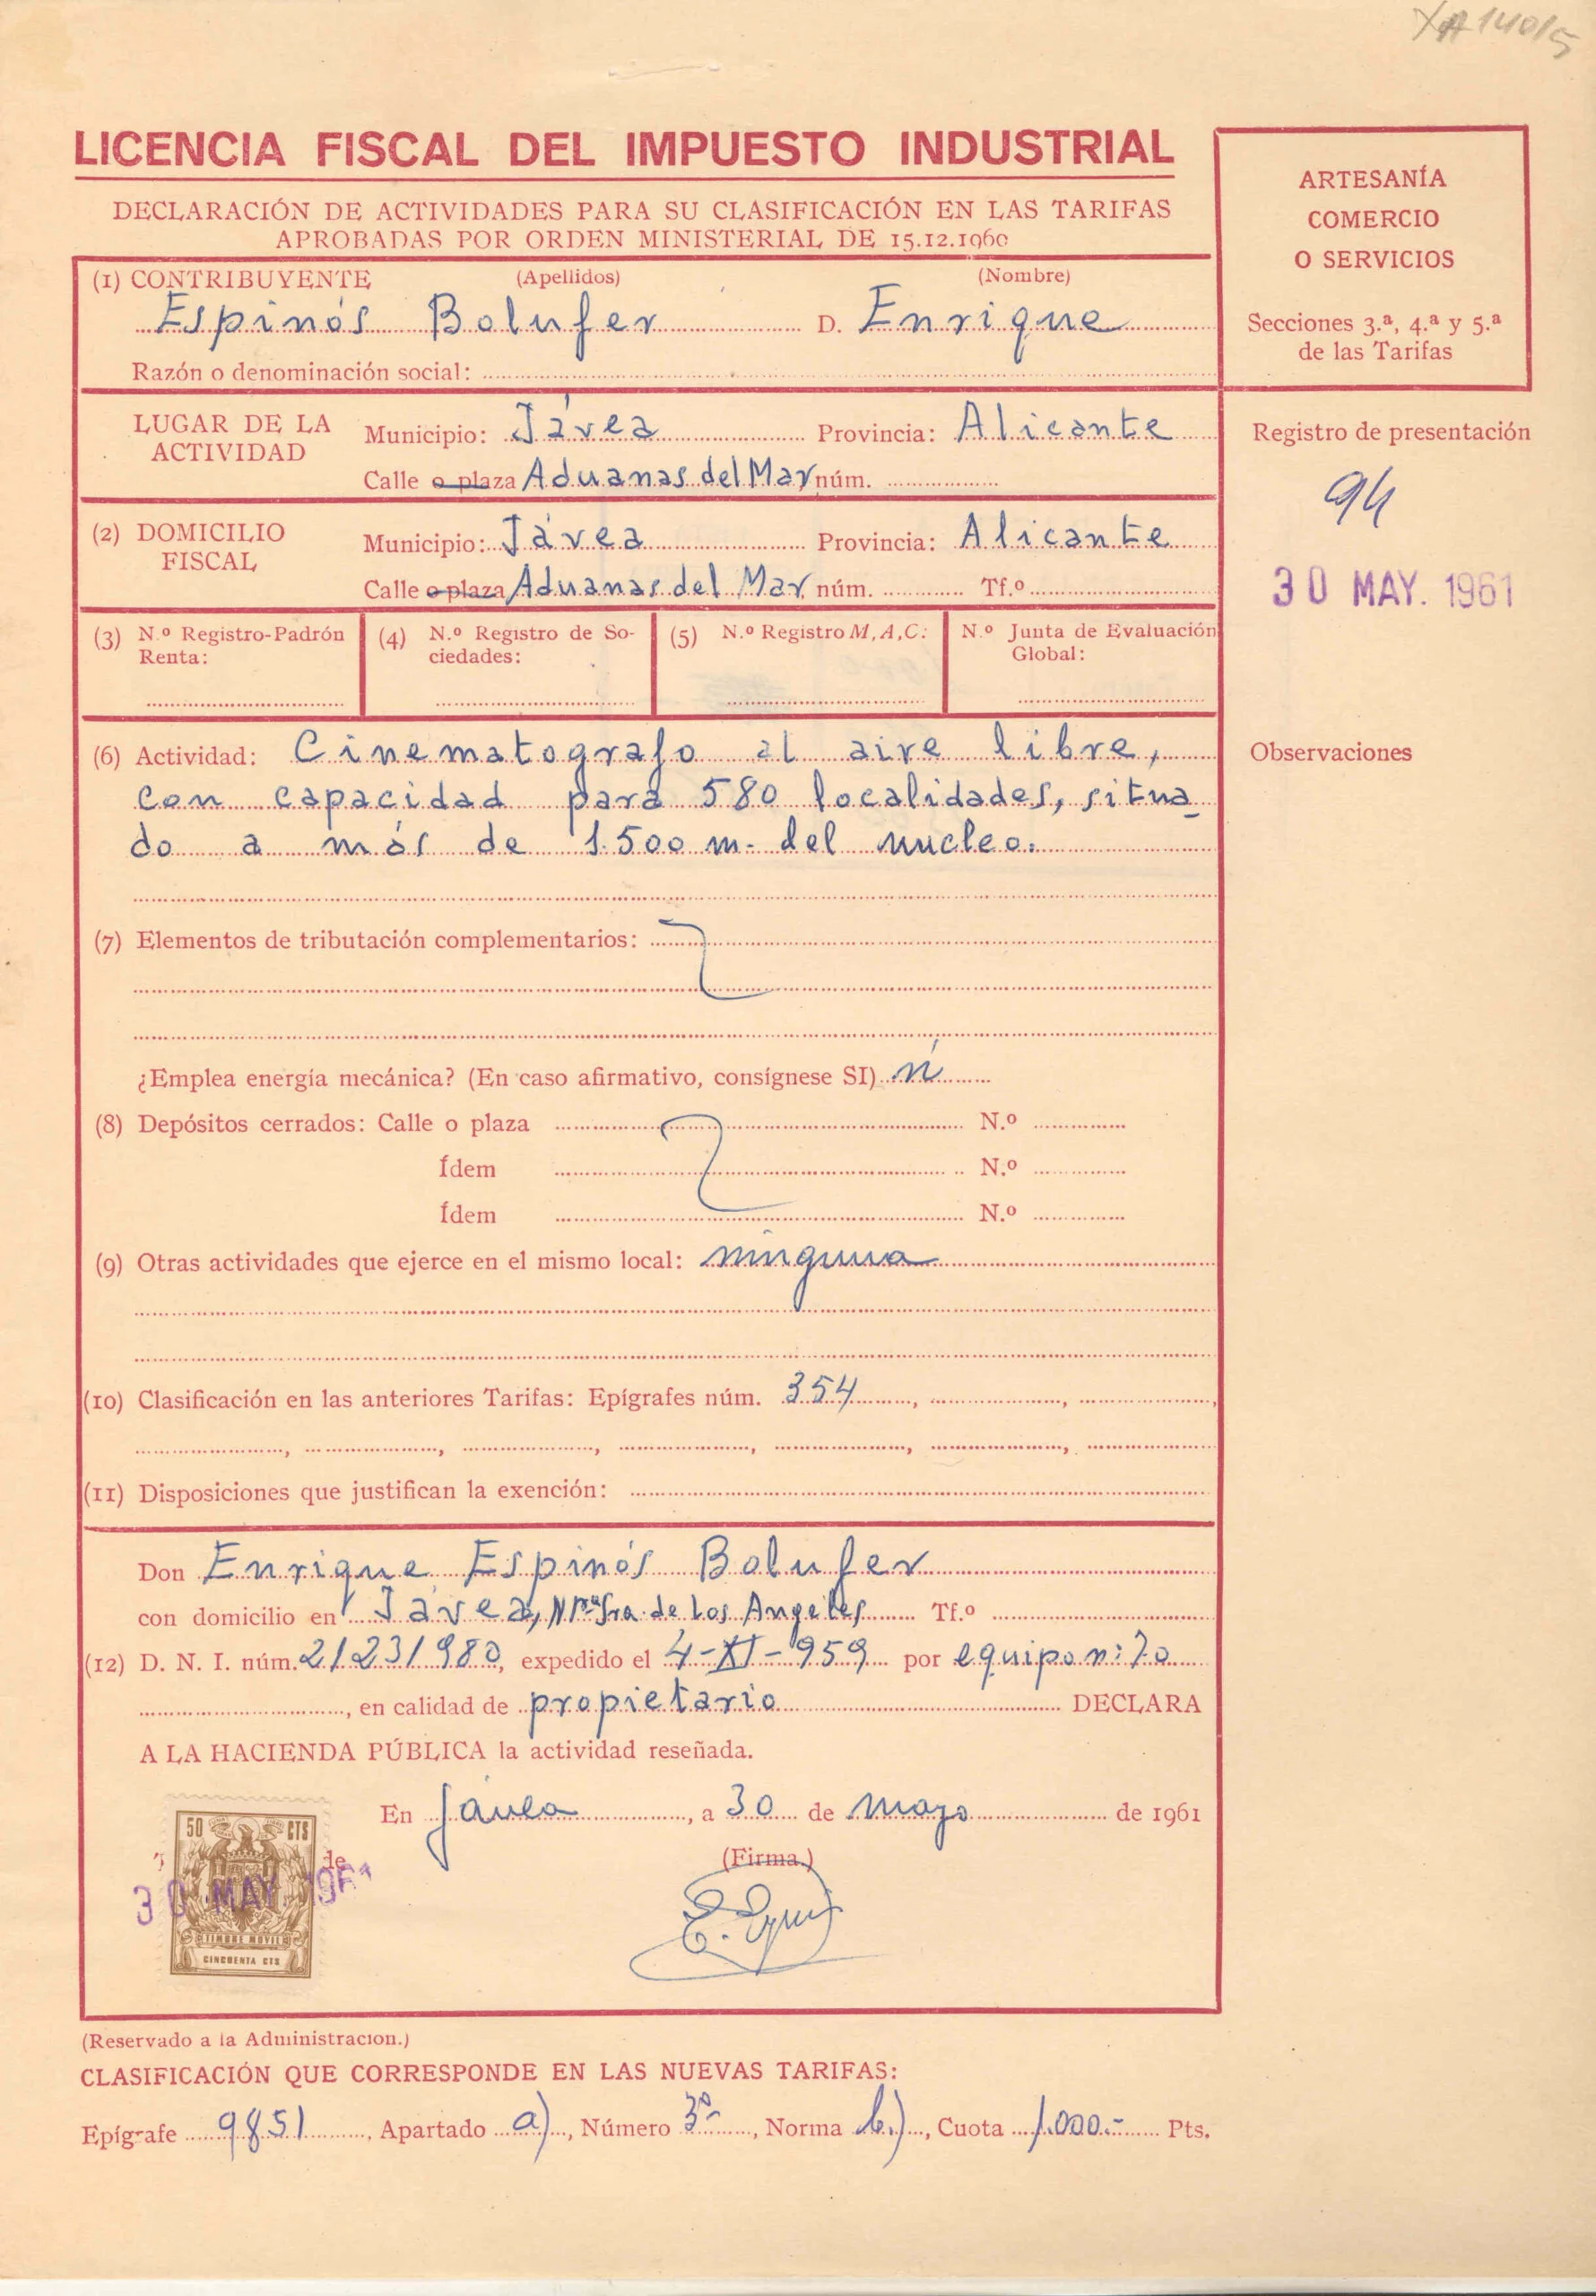 XA 140/5
LICENCIA FISCAL DEL IMPUESTO INDUSTRIAL
DECLARACIÓN DE ACTIVIDADES PARA SU CLASIFICACIÓN EN LAS TARIFAS
APROBADAS POR ORDEN MINISTERIAL DE 15.12.1960
ARTESANÍA
COMERCIO
O SERVICIOS
Secciones 3.ª, 4.ª y 5.ª
de las Tarifas
(1) CONTRIBUYENTE (Apellidos) (Nombre)
Espinós Bolufer D. Enrique
Razón o denominación social:
LUGAR DE LA ACTIVIDAD
Municipio: Jávea Provincia: Alicante
Calle o plaza Aduanas del Mar núm.
Registro de presentación
94
30 MAY. 1961
(2) DOMICILIO FISCAL
Municipio: Jávea Provincia: Alicante
Calle o plaza Aduanas del Mar núm. Tf.º
(3) N.º Registro-Padrón Renta:
(4) N.º Registro de Sociedades:
(5) N.º Registro M, A, C:
N.º Junta de Evaluación Global:
Observaciones
(6) Actividad: Cinematografo al aire libre,
con capacidad para 580 localidades, situa
do a más de 1.500 m. del nucleo.
(7) Elementos de tributación complementarios:
¿Emplea energía mecánica? (En caso afirmativo, consígnese SI)
(8) Depósitos cerrados: Calle o plaza N.º
Ídem N.º
Ídem N.º
(9) Otras actividades que ejerce en el mismo local: ninguna
(10) Clasificación en las anteriores Tarifas: Epígrafes núm. 354
(11) Disposiciones que justifican la exención:
Don Enrique Espinós Bolufer
con domicilio en Jávea, Ntra Sra. de los Angeles Tf.º
(12) D. N. I. núm. 21231980, expedido el 4-XI-959 por equipo n: 70
, en calidad de propietario DECLARA
A LA HACIENDA PÚBLICA la actividad reseñada.
En Jávea, a 30 de mayo de 1961
(Firma.)
50 CTS
de
30 MAY 1961
TIMBRE MOVIL
CINCUENTA CTS
(Reservado a la Administracion.)
CLASIFICACIÓN QUE CORRESPONDE EN LAS NUEVAS TARIFAS:
Epígrafe 9851, Apartado a), Número 3º, Norma b.), Cuota 1.000.- Pts.